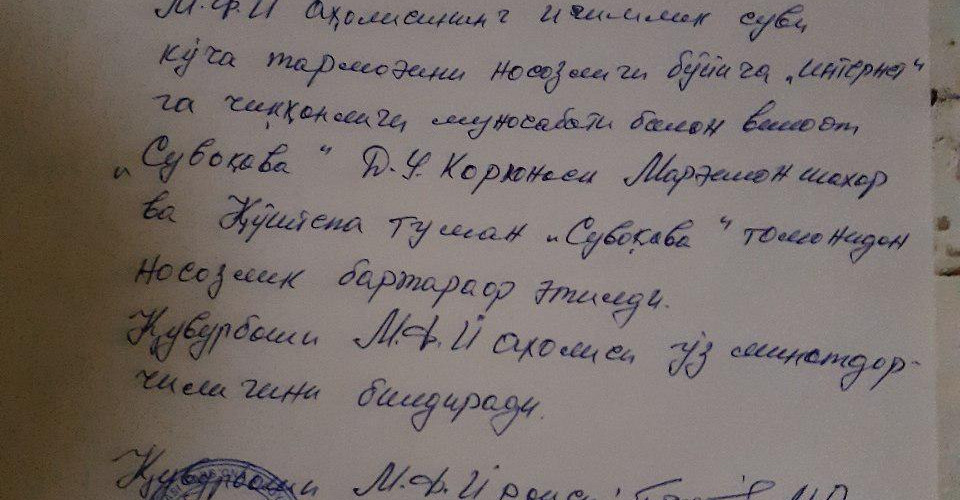 М.Ф.Й аҳолисининг ичимлик суви
кўча тармоғини носозлиги бўйича „интернет“
га чиққонлиги муносабати билон вилоят
„Сувоқава“ Д.У.Корхнаси Марғилон шахар
ва Қўштепа туман „Сувоқава“ томонидон
носозлик бартараор этилди.
Қувурбоши М.Ф.Й аҳолиси ўз миннатдор-
чилигини билдиради.
Қувурбоши М.Ф.Й раиси